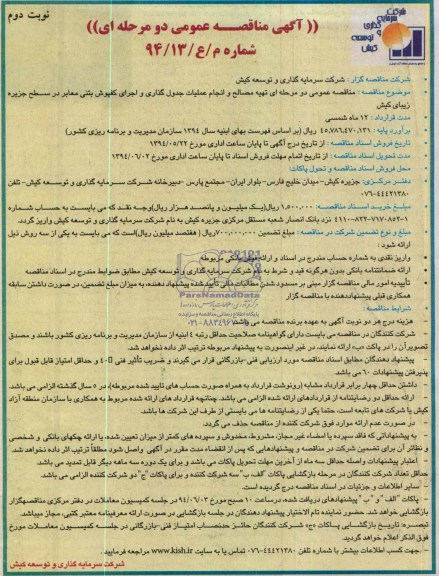 نوبت دوم
شرکت سرمایه گذاری و توسعه کیش
(( آگهی مناقصه عمومی دو مرحله ای))
شماره م/ع/۹۴/۱۳
شرکت مناقصه گزار : شرکت سرمایه گذاری و توسعه کیش
موضوع مناقصه : مناقصه عمومی دو مرحله ای تهیه مصالح و انجام عملیات جدول گذاری و اجرای کفپوش بتنی معابر در سطح جزیره
زیبای کیش
مدت قرارداد : ۱۲ ماه شمسی
برآورد پایه : ۴۵,۷۸۶,۴۷۰,۱۳۱ ریال (بر اساس فهرست بهای ابنیه سال ۱۳۹۴ سازمان مدیریت و برنامه ریزی کشور)
تاریخ فروش اسناد مناقصه : از تاریخ درج آگهی تا پایان ساعت اداری مورخ ۱۳۹۴/۰۵/۲۲
مدت تحویل اسناد مناقصه : از تاریخ اتمام مهلت فروش اسناد تا پایان ساعت اداری مورخ ۱۳۹۴/۰۶/۰۲
محل فروش اسناد مناقصه و تحویل پاکات:
دفتر مرکزی: جزیره کیش- میدان خلیج فارس- بلوار ایران- مجتمع پارس -دبیرخانه شرکت سرمایه گذاری و توسعه کیش- تلفن
۰۷۶-۴۴۴۲۱۳۸۰
مبلغ خرید اسناد مناقصه: ۱,۵۰۰,۰۰۰ ریال(یک میلیون و پانصد هزار ریال)وجه نقد که می بایست به حساب شماره
۴۱۱۰-۸۲۲-۷۱۷۰۸۵۲-۱ نزد بانک انصار شعبه مستقل مرکزی جزیره کیش به نام شرکت سرمایه گذاری و توسعه کیش واریز گردد.
مبلغ و نوع تضمین شرکت در مناقصه : مبلغ تضمین ۷۰۰,۰۰۰,۰۰۰ریال ( هفتصد میلیون ریال)است که می بایست به یکی از سه روش ذیل
ارائه شود :
واریز نقدی به شماره حساب مندرج در اسناد و ارائه فیش بانکی مربوطه
ارائه ضمانتنامه بانکی بدون هرگونه قید و شرط به نام شرکت سرمایه گذاری و توسعه کیش مطابق ضوابط مندرج در اسناد مناقصه
تأییدیه امور مالی مناقصه گزار مبنی بر مسدود شدن مطالبات مالی تأیید شده پیشنهاد دهنده، به میزان مبلغ تضمین، در صورت داشتن سابقه
همکاری قبلی پیشنهاددهنده با مناقصه گزار
شرایط مناقصه :
هزینه درج هر دو نوبت آگهی به عهده برنده مناقصه می باشد
شرکت کنندگان در مناقصه می بایست دارای گواهینامه صلاحیت حداقل رتبه ٤ ابنیه از سازمان مدیریت و برنامه ریزی کشور باشند و مصدق
تصویر آن را در پاکت «ب» ارائه نمایند. در غیر اینصورت به پیشنهاد مربوطه ترتیب اثر داده نخواهد شد.
پیشنهاد دهندگان مطابق اسناد مناقصه مورد ارزیابی فنی-بازرگانی قرار می گیرند و ضریب تأثیر فنی ٪۴۰ و حداقل امتیاز قابل قبول برای
پذیرفتن پیشنهادات ۶۰ می باشد
داشتن حداقل چهار برابر قرارداد مشابه (رونوشت قرارداد به همراه صورت حساب های تایید شده مربوطه) در ۵ سال گذشته الزامی می باشد.
ارائه حداقل دو رضایتنامه از قراردادهای ارائه شده الزامی می باشد. چنانچه قرارداد های ارائه شده مربوط به همکاری با سازمان منطقه آزاد
کیش یا شرکت های تابعه است، حتما یکی از رضایتنامه ها می بایستی از طرف این شرکت ها باشد.
در صورت عدم ارائه موارد فوق شرکت کننده از مناقصه حذف می گردد.
به پیشنهاداتی که فاقد سپرده یا امضاء، غیر مجاز، مشروط، مخدوش و سپرده های کمتر از میزان تعیین شده، یا ارائه چکهای بانکی و شخصی
و نظائر آن برای تضمین شرکت در مناقصه و پیشنهادهایی که پس از انقضاء مدت مقرر در آگهی واصل شود مطلقاً ترتیب اثر داده نخواهد شد.
اعتبار پیشنهادات واصله حداقل سه ماه از آخرین مهلت تحویل پاکات می باشد و برای یک دوره سه ماهه دیگر قابل تمدید می باشد.
حداقل تعداد شرکت کنندگان در مرحله بازگشایی پاکات "الف ،ب" سه شرکت کننده و برای پاکات "ج" دو شرکت کننده الزامی می باشد
سایر اطلاعات و جزئیات در اسناد مناقصه درج گردیده است.
پاکات "الف" و "ب" پیشنهادهای دریافت شده، درساعت ۱۰ صبح مورخ ۹۴/۰۶/۰۳ در جلسه کمیسیون معاملات در دفتر مرکزی مناقصهگزار
بازگشایی خواهد شد. حضور نماینده تام الاختیار پیشنهاد دهندگان در جلسه بازگشایی در صورت ارائه معرفینامه معتبر کتبی، مجاز میباشد.
تبصره: تاریخ بازگشایی پاکات «ج» شرکت کنندگان حائز حدنصاب امتیاز فنی-بازرگانی در جلسه کمیسیون معاملات مورخ
فوق الذکر اعلام خواهد گردید.
جهت کسب اطلاعات بیشتر با شماره تلفن ۰۷۶-۴۴۴۲۱۳۸۰ تماس یا به سایت www.kish.ir مراجعه فرمایید .
شرکت سرمایه گذاری و توسعه کیش
ParsNamadData
پایگاه اطلاع رسانی مناقصه و مزایده
۰۲۱-۸۸۳۴۹۶۷۰